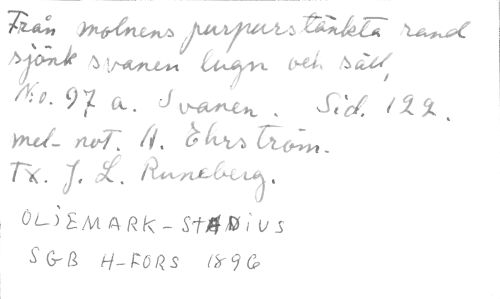 Från molnens purpurstänkta rand
sjönk svanen lugn och säll,
No. 97, a. Svanen. Sid. 122.
mel- not. A. Ehrström.
Tx. J. L. Runeberg.
OLJEMARK-STADIUS
SGB H-FORS 1896